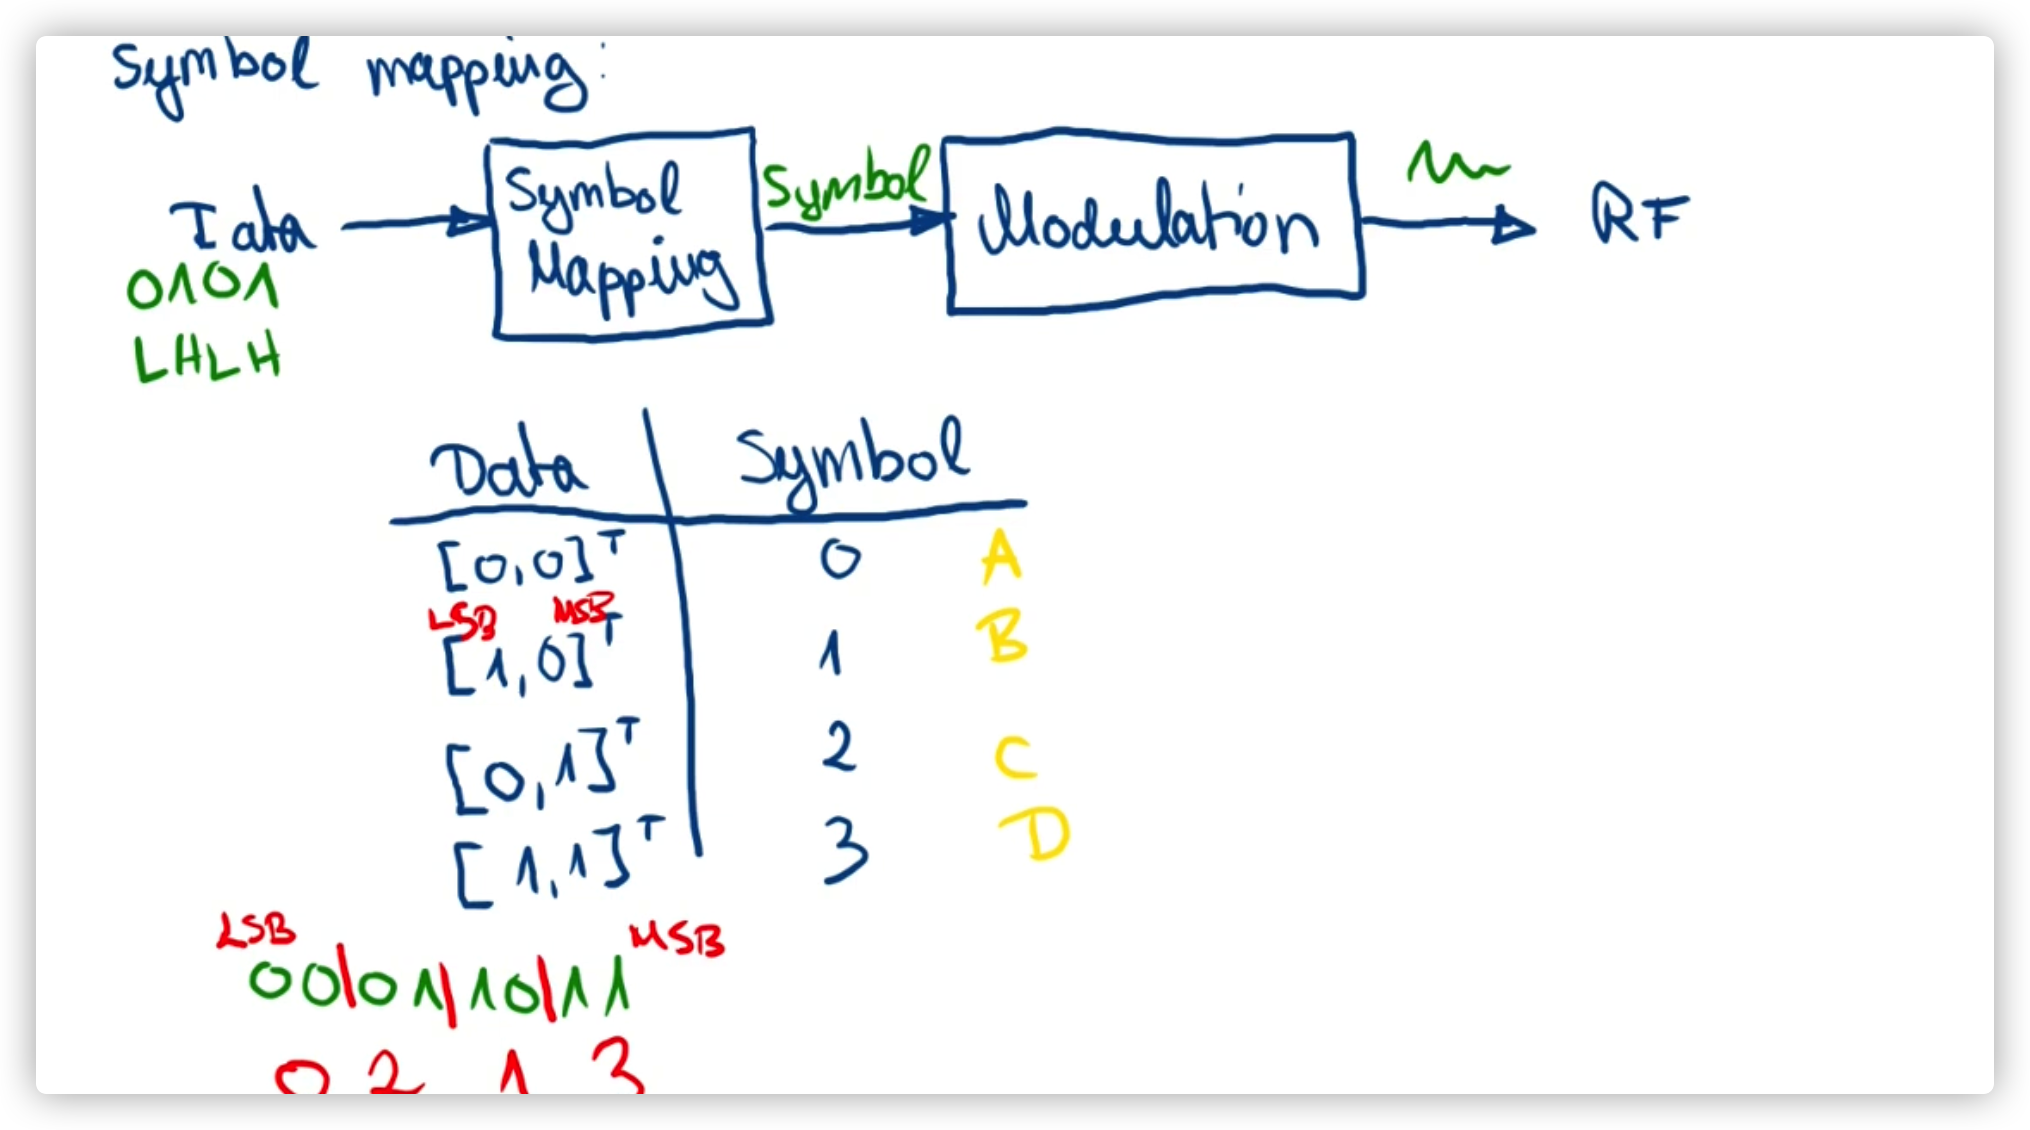 Symbol mapping:
Data
Symbol Mapping
Symbol
Modulation
RF
0101
LHLH
Data Symbol
[0,0]ᵀ 0 A
LSB MSB
[1,0]ᵀ 1 B
[0,1]ᵀ 2 C
[1,1]ᵀ 3 D
LSB MSB
00|01|10|11
0 2 1 3